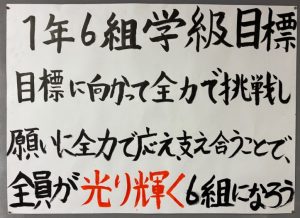 1年6組学級目標
目標に向かって全力で挑戦し
願いに全力で応え、支え合うことで、
全員が光り輝く6組になろう